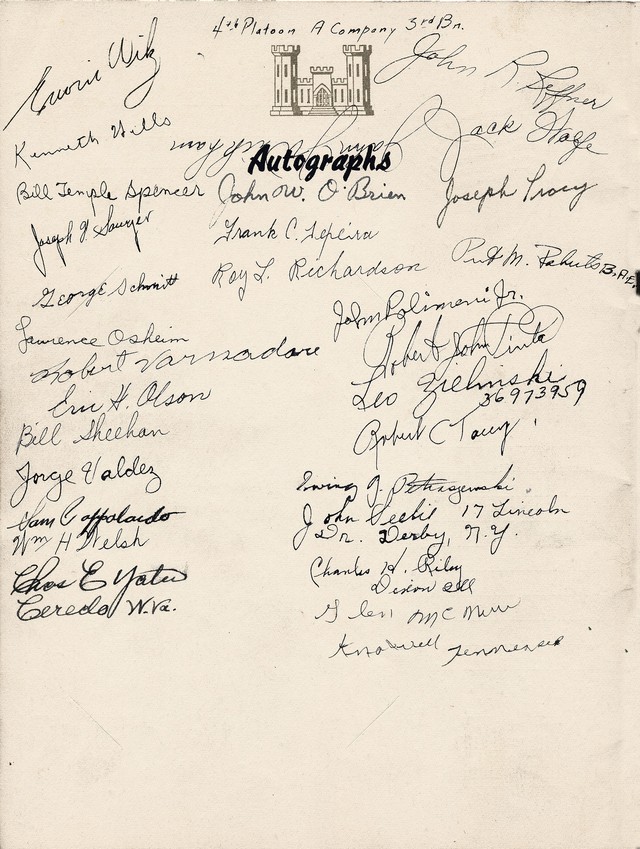 4th Platoon A Company 3rd Bn.
Autographs
Wik
John R
Kenneth Wills
Jack
Bill Temple Spencer
John W. O'Brien
Joseph Tracy
Joseph J. Sawyer
Frank C.
George Schmitt
Roy L. Richardson
Pvt M. Roberts
Lawrence Osheim
John Polimeni Jr.
Robert Varnadore
Robert John
Eric H. Olson
Leo Zielinski
36973959
Bill Sheehan
Robert C
Jorge Valdez
Sam Cappolardo
John 17 Lincoln
Dr. Derby, N.Y.
Wm H Welsh
Chas E Yates
Ceredo W.Va.
Charles H. Riley
Dixon Ill
Glen
Knoxwell Tennessee